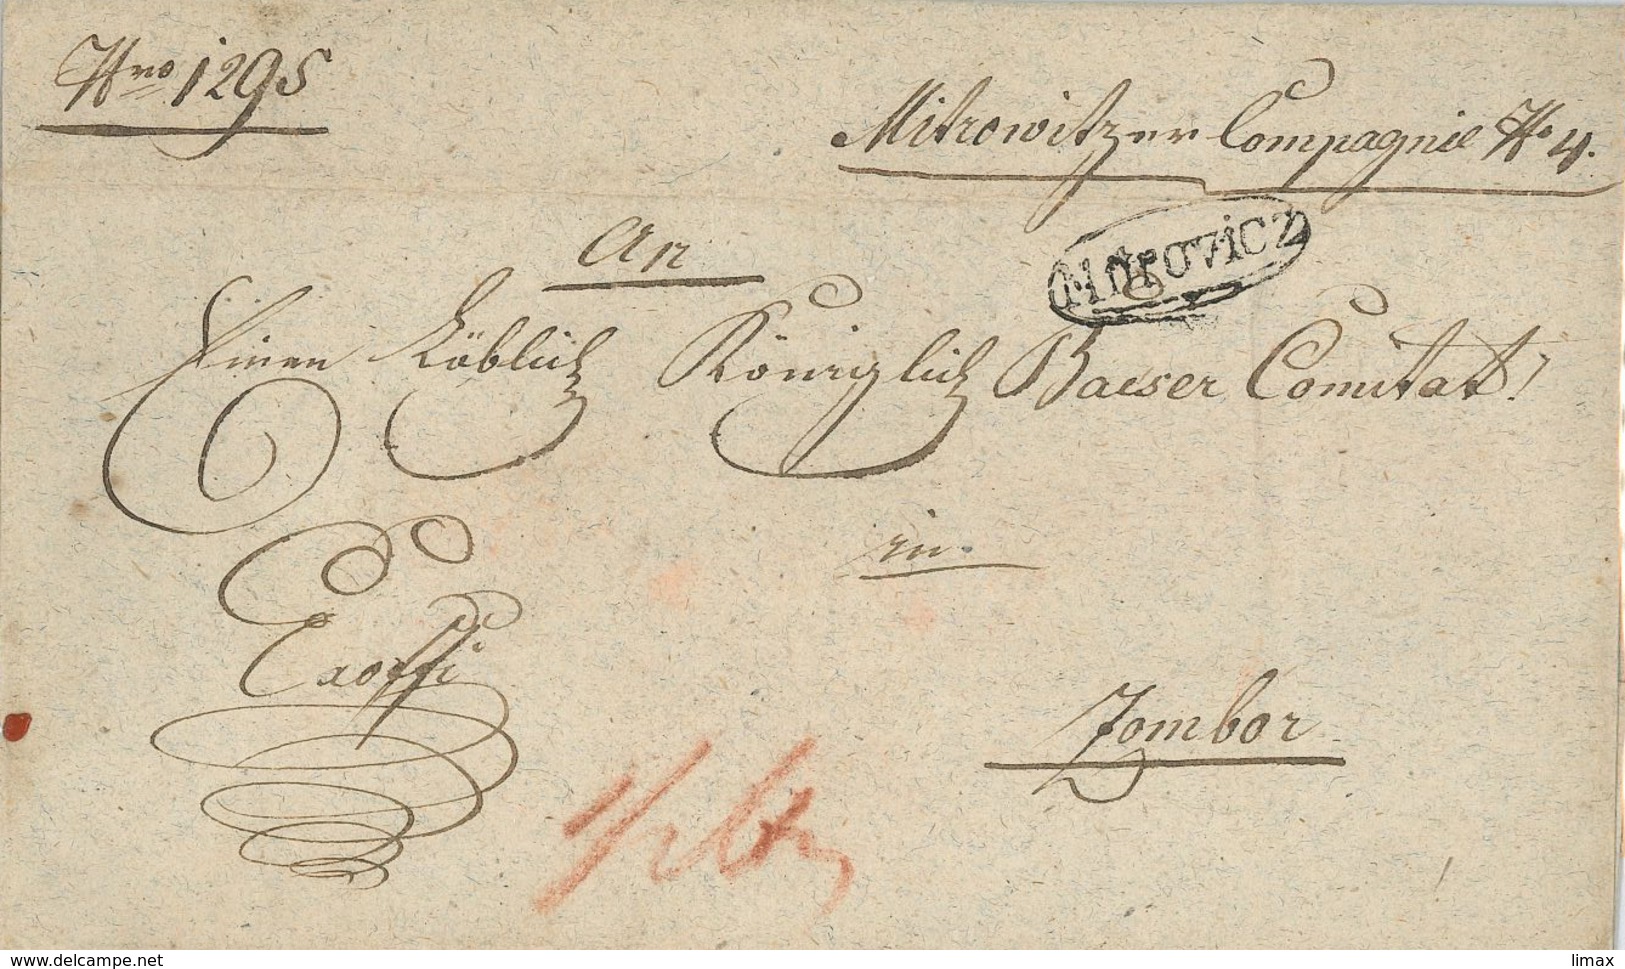 Nro 1295
Mitrowitzer Compagnie No 4.
An
Mitrovicz
Einen Löblich Königlich Bacser Comitat!
in
Exoffi
Zombor
www.delcampe.net
limax